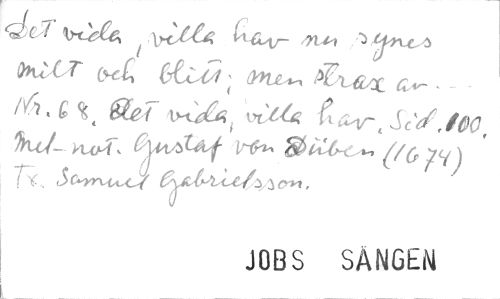 Det vida, villa hav nu synes
milt och blitt; men strax av...
Nr. 68. Det vida, villa hav. Sid. 100.
Mel-not. Gustaf von Düben (1674)
Tx. Samuel Gabrielsson.
JOBS SÅNGEN